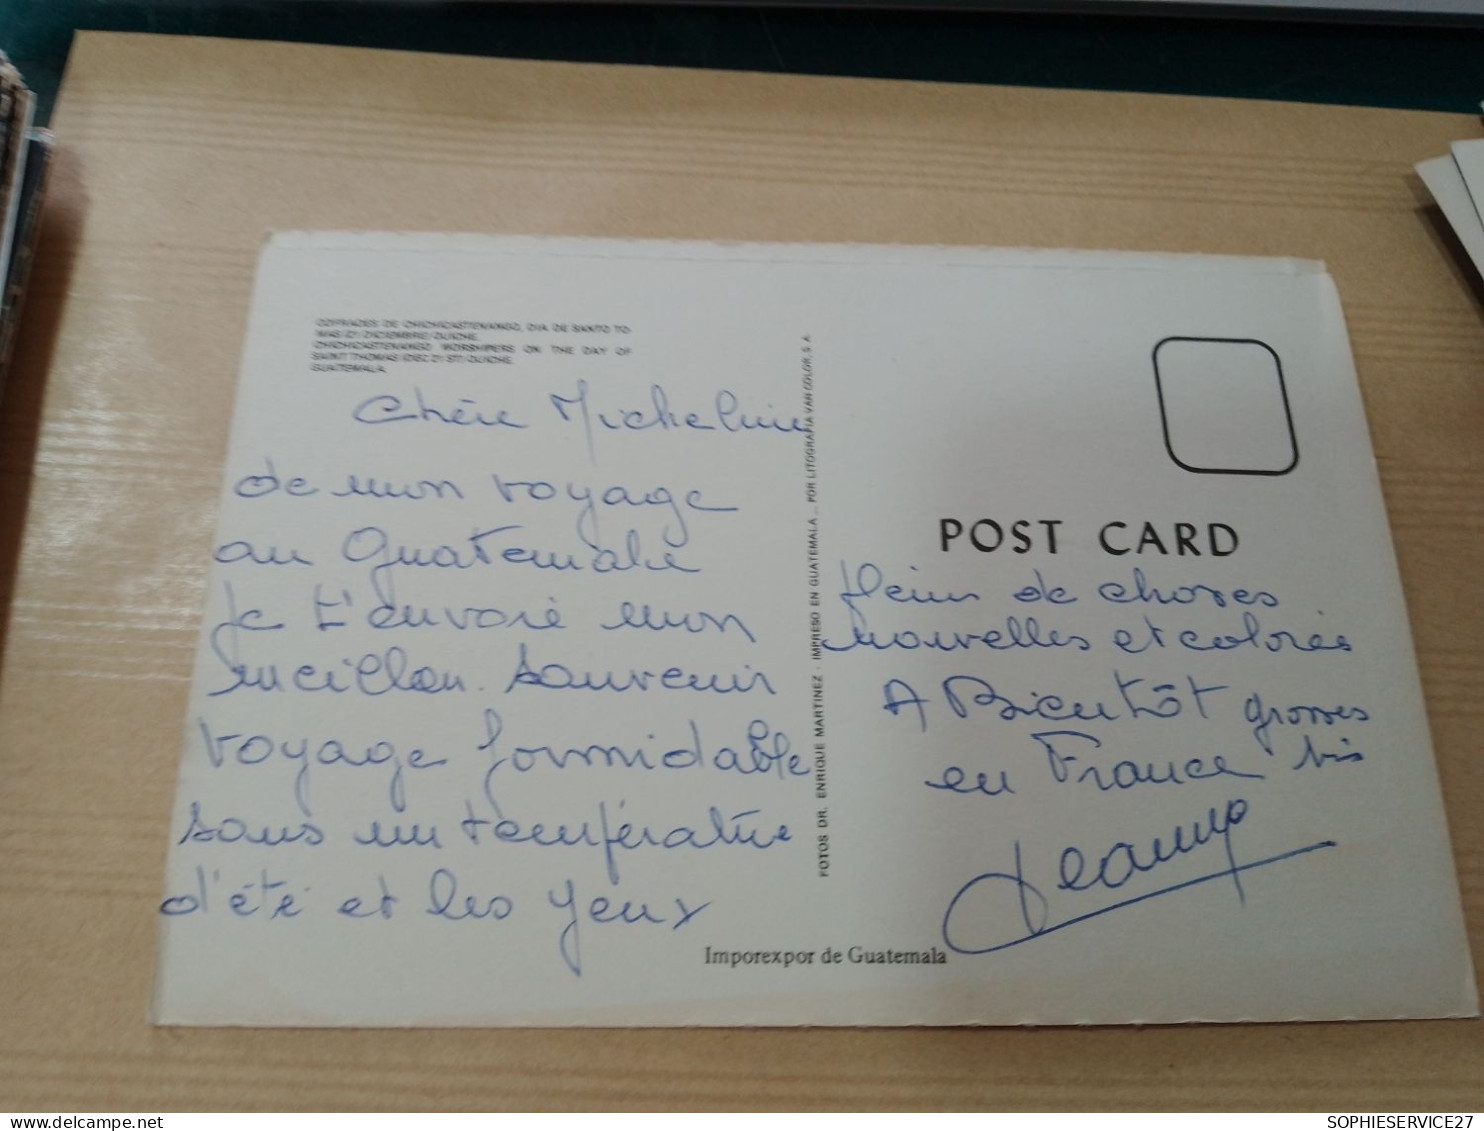 COFRADES DE CHICHICASTENANGO, DIA DE SANTO TO-
MAS (21 DICIEMBRE) QUICHE.
CHICHICASTENANGO WORSHIPERS ON THE DAY OF
SAINT THOMAS (DEC 21 ST) QUICHE.
GUATEMALA.
Chère Micheline
de mon voyage
au Guatemala
Je t'envoie mon
meilleur souvenir
voyage formidable
sous une température
d'été et les yeux
FOTOS DR. ENRIQUE MARTINEZ - IMPRESO EN GUATEMALA... POR LITOGRAFIA VAN COLOR, S. A.
POST CARD
pleins de choses
nouvelles et colorés
A Bientôt grosses
en France bis
Jeanne
Imporexpor de Guatemala
SOPHIESERVICE27